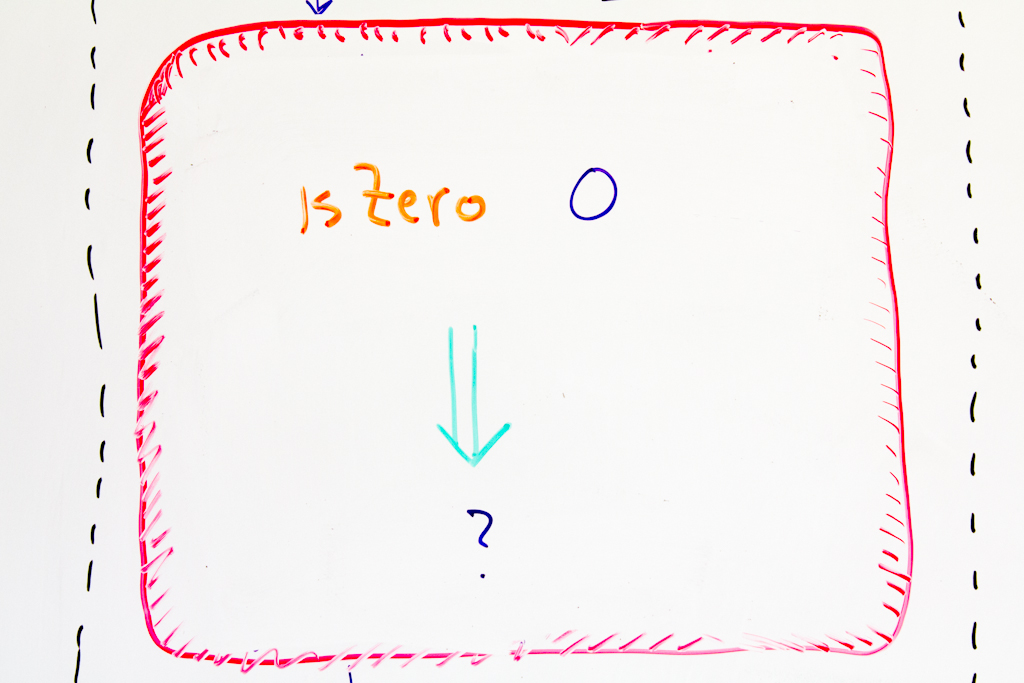 isZero 0
?